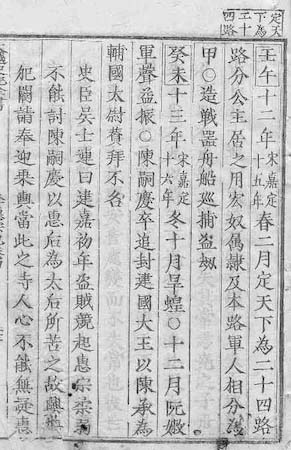 定天
下為
二十
四路
壬午十二年宋嘉定十五年春二月定天下為二十四路
路分公主居之用宏奴属隷及本路軍人相分為
甲〇造戰器舟船巡捕盗刼
癸未十三年宋嘉定十六年冬十月旱蝗〇十二月阮嫩
軍聲益振〇陳嗣慶卒追封建國大王以陳承為
輔國太尉賛拜不名
史臣吳士連曰建嘉初年盗賊競起惠宗柔
不能討陳嗣慶以惠后為太后所苦之故興兵
犯闕請奉迎乘輿當此之寺人心不能無疑惠